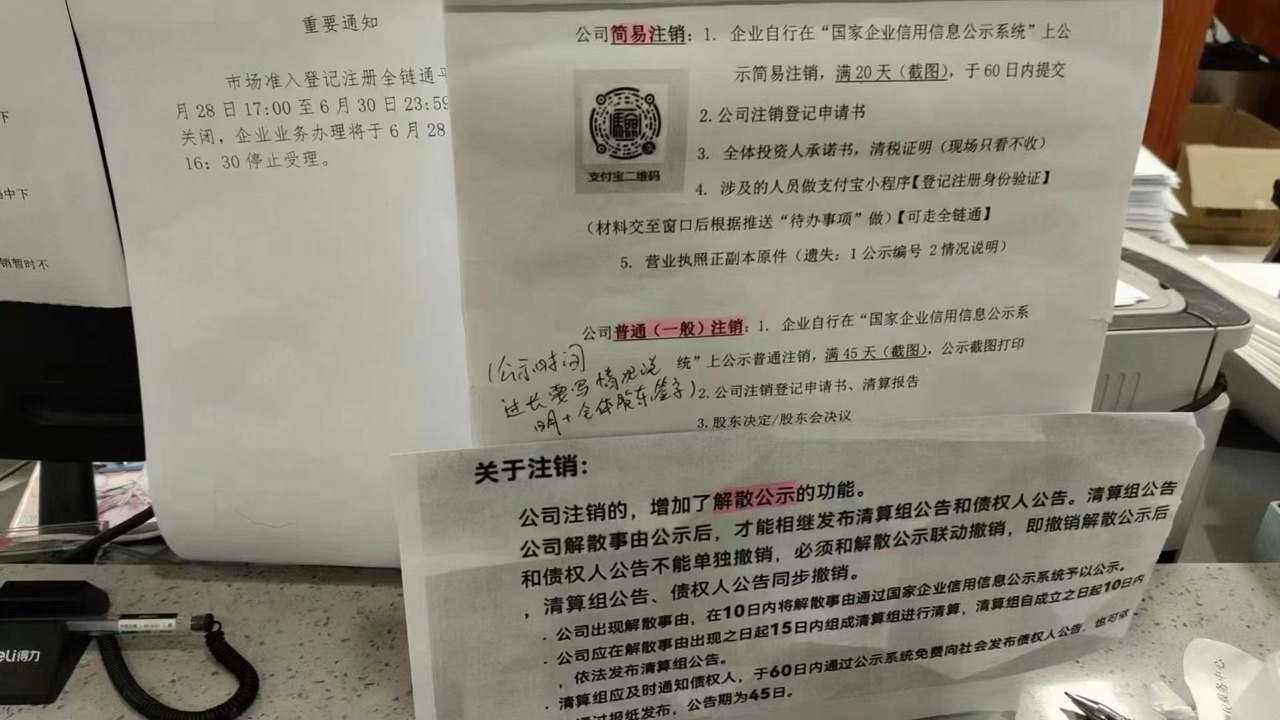 下
中下
销暂时不
重要通知
市场准入登记注册全链通平
月28日17:00至6月30日23:59
关闭，企业业务办理将于6月28
16：30停止受理。
公司简易注销：1. 企业自行在“国家企业信用信息公示系统”上公
示简易注销，满20天（截图），于60日内提交
2. 公司注销登记申请书
3. 全体投资人承诺书，清税证明（现场只看不收）
4. 涉及的人员做支付宝小程序【登记注册身份验证】
（材料交至窗口后根据推送“待办事项”做）【可走全链通】
5. 营业执照正副本原件（遗失：1公示编号 2情况说明）
支付宝二维码
公司普通（一般）注销：1. 企业自行在“国家企业信用信息公示系
统”上公示普通注销，满45天（截图），公示截图打印
2. 公司注销登记申请书、清算报告
3. 股东决定/股东会决议
（公示时间
过长要写情况说
明+全体股东签字）
关于注销：
公司注销的，增加了解散公示的功能。
公司解散事由公示后，才能相继发布清算组公告和债权人公告。清算组公告
和债权人公告不能单独撤销，必须和解散公示联动撤销，即撤销解散公示后
，清算组公告、债权人公告同步撤销。
· 公司出现解散事由，在10日内将解散事由通过国家企业信用信息公示系统予以公示。
· 公司应在解散事由出现之日起15日内组成清算组进行清算，清算组自成立之日起10日内
，依法发布清算组公告。
· 清算组应及时通知债权人，于60日内通过公示系统免费向社会发布债权人公告，也可依
通过报纸发布，公告期为45日。
eli得力
服务中心